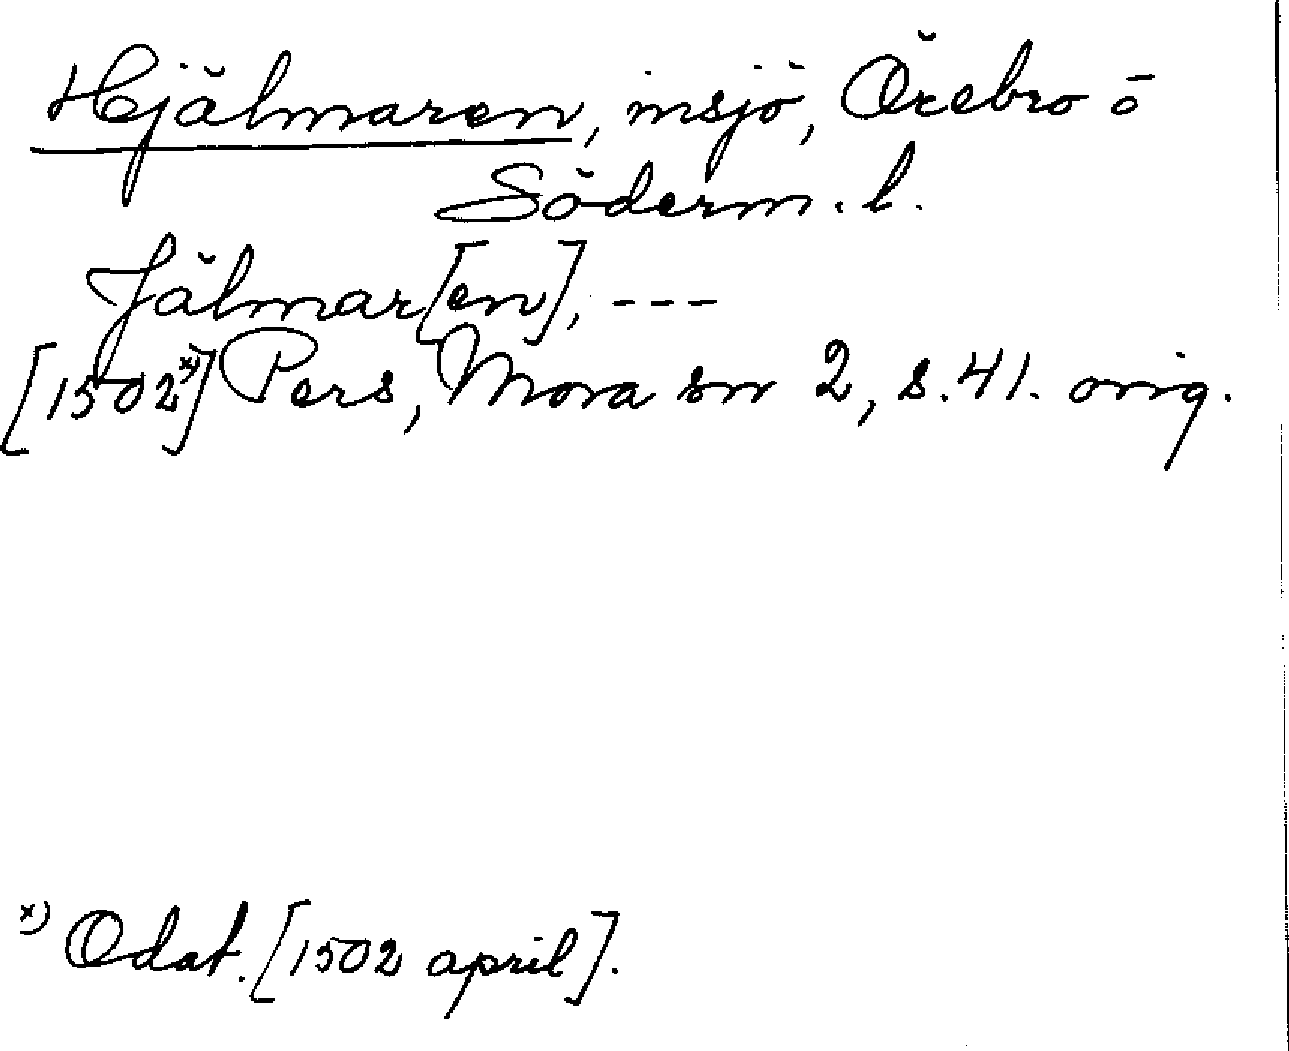 Hjälmaren, insjö, Örebro o
Söderm. l.
Jälmar[en], ---
[1502ˣ⁾] Pers, Mora sn 2, s. 41. orig.
ˣ⁾ Odat. [1502 april].